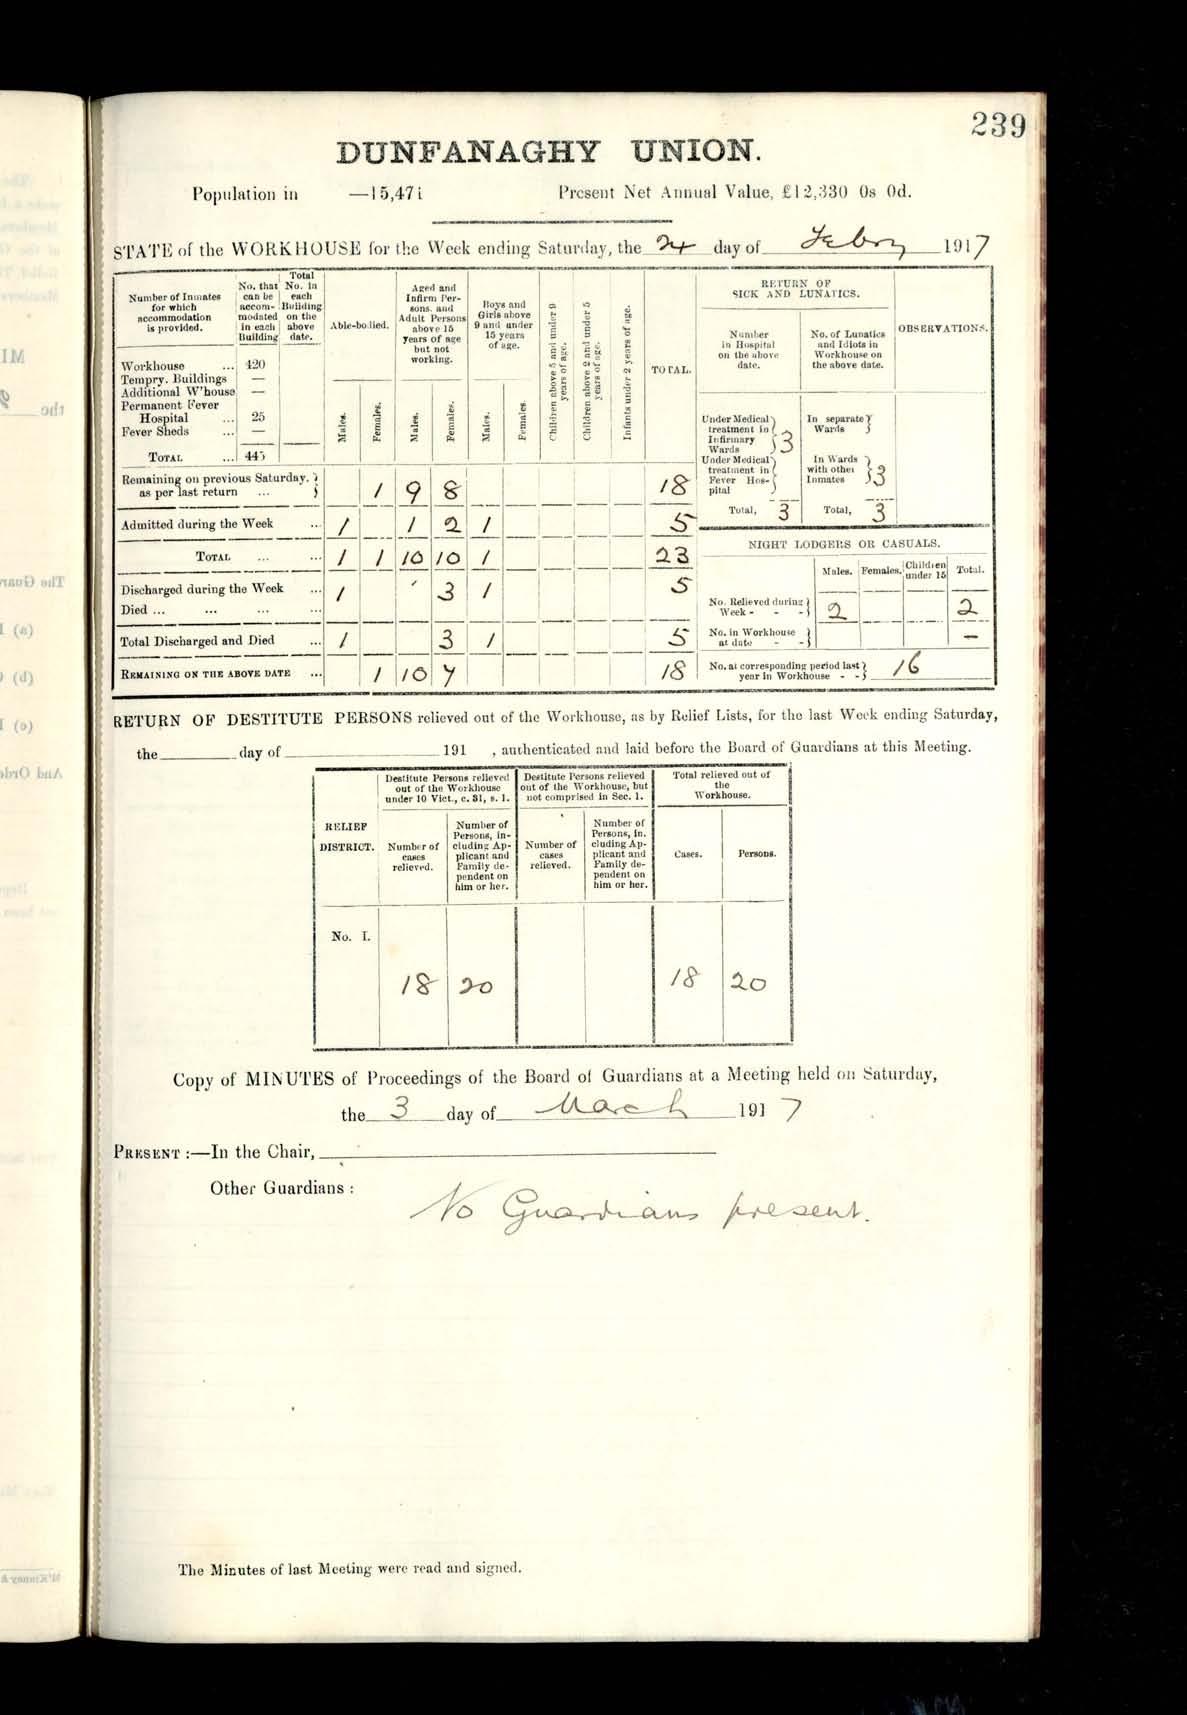 239
DUNFANAGHY UNION.
Population in —15,471 Present Net Annual Value, £12,330 0s 0d.
STATE of the WORKHOUSE for the Week ending Saturday, the 24 day of Febry 1917
Number of Inmates for which accommodation is provided.
No. that can be accommodated in each Building
Total No. in each Building on the above date.
Able-bodied.
Aged and Infirm Persons, and Adult Persons above 15 years of age but not working.
Boys and Girls above 9 and under 15 years of age.
Children above 5 and under 9 years of age.
Children above 2 and under 5 years of age.
Infants under 2 years of age.
TOTAL.
Males. Females. Males. Females. Males. Females.
Workhouse ... 420
Tempry. Buildings —
Additional W'house —
Permanent Fever
Hospital ... 25
Fever Sheds ... —
TOTAL ... 445
Remaining on previous Saturday, as per last return ... 1 9 8 18
Admitted during the Week ... 1 1 2 1 5
TOTAL ... ... 1 1 10 10 1 23
Discharged during the Week ... 1 3 1 5
Died ... ... ... ...
Total Discharged and Died ... 1 3 1 5
REMAINING ON THE ABOVE DATE ... 1 10 7 18
RETURN OF SICK AND LUNATICS.
OBSERVATIONS.
Number in Hospital on the above date.
No. of Lunatics and Idiots in Workhouse on the above date.
Under Medical treatment in Infirmary Wards 3
Under Medical treatment in Fever Hospital
Total, 3
In separate Wards
In Wards with other Inmates 3
Total, 3
NIGHT LODGERS OR CASUALS.
Males. Females. Children under 15 Total.
No. Relieved during Week - - - 2 2
No. in Workhouse at date - - —
No. at corresponding period last year in Workhouse - - 16
RETURN OF DESTITUTE PERSONS relieved out of the Workhouse, as by Relief Lists, for the last Week ending Saturday,
the day of 191 , authenticated and laid before the Board of Guardians at this Meeting.
RELIEF DISTRICT.
Destitute Persons relieved out of the Workhouse under 10 Vict., c. 31, s. 1.
Destitute Persons relieved out of the Workhouse, but not comprised in Sec. 1.
Total relieved out of the Workhouse.
Number of cases relieved.
Number of Persons, including Applicant and Family dependent on him or her.
Number of cases relieved.
Number of Persons, in. cluding Applicant and Family dependent on him or her.
Cases. Persons.
No. I.
18 20 18 20
Copy of MINUTES of Proceedings of the Board of Guardians at a Meeting held on Saturday,
the 3 day of March 1917
PRESENT :—In the Chair,
Other Guardians :
No Guardians present.
The Minutes of last Meeting were read and signed.